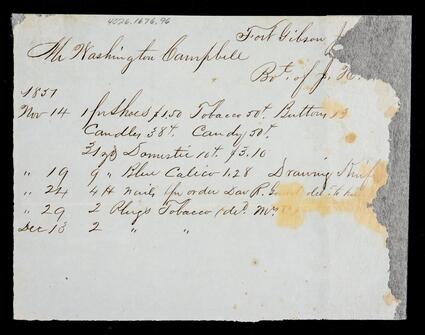 4026.1676.96
Fort Gibson
Mr Washington Campbell
Bot. of J. H.
1851
Nov 14 1 pr Shoes $1.50 Tobacco 50¢. Buttons 15
Candles 38¢. Candy 50¢.
31 yd Domestic 10¢. $3.10
" 19 9 " Blue Calico 1.28 Drawing Knif
" 24 4 lb Nails pr order Dav R.
" 29 2 Plugs Tobacco
Dec 13 2 " "